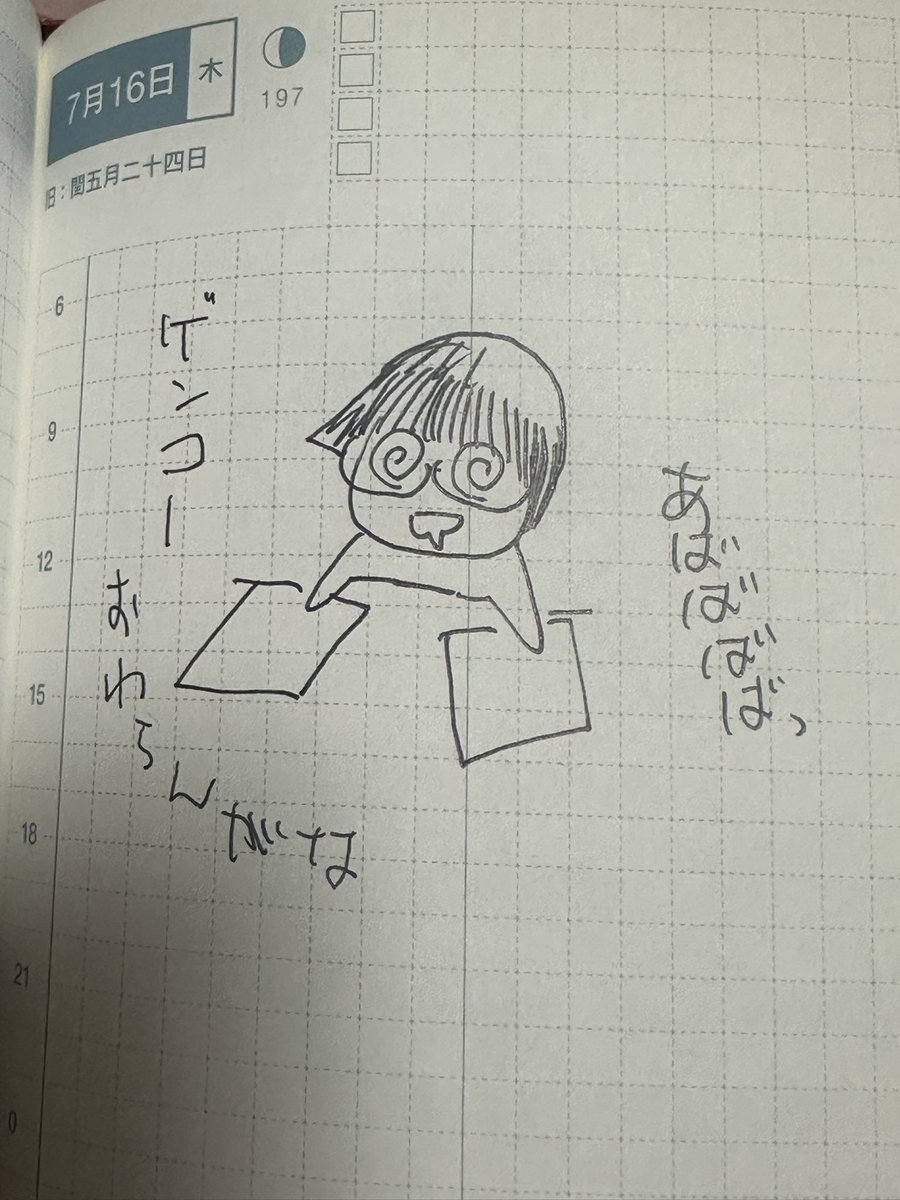 7月16日
木
197
旧：閏五月二十四日
6
9
12
15
18
21
0
あばばばばっ
ゲンコー
おわらんがな